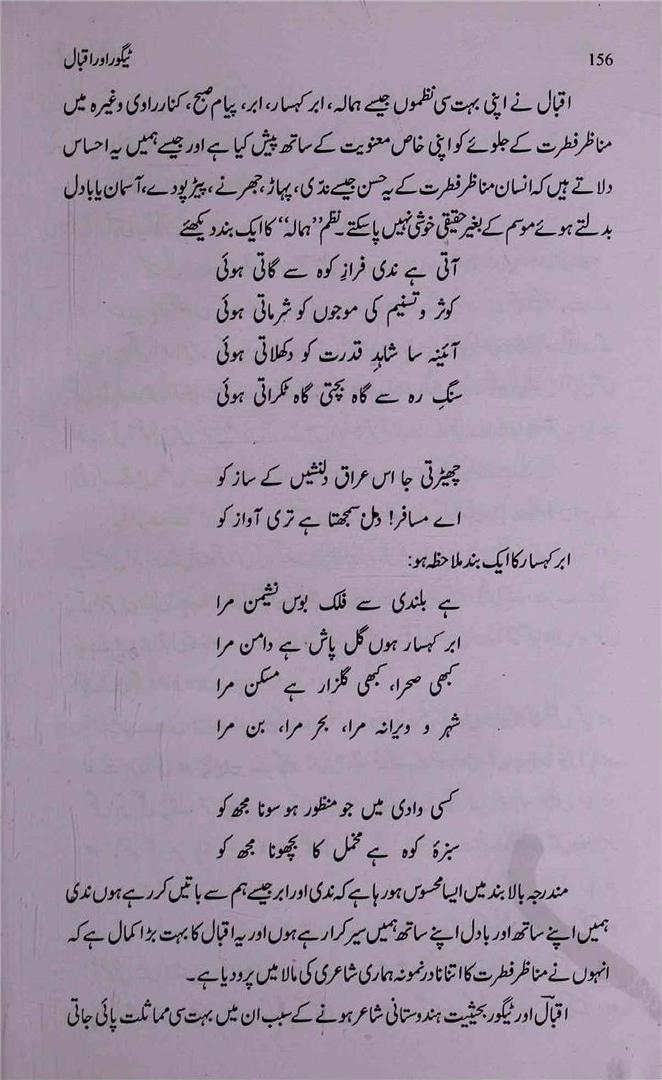 156
ٹیگور اور اقبال
اقبال نے اپنی بہت سی نظموں جیسے ہمالہ، ابر کہسار، ابر، پیام صبح، کنار راوی وغیرہ میں
مناظر فطرت کے جلوئے کو اپنی خاص معنویت کے ساتھ پیش کیا ہے اور جیسے ہمیں یہ احساس
دلاتے ہیں کہ انسان مناظر فطرت کے یہ حسن جیسے ندّی، پہاڑ، جھرنے، پیڑ پودے، آسمان یا بادل
بدلتے ہوئے موسم کے بغیر حقیقی خوشی نہیں پاسکتے۔ نظم ”ہمالہ“ کا ایک بند دیکھئے
آتی ہے ندی فرازِ کوہ سے گاتی ہوئی
کوثر و تسنیم کی موجوں کو شرماتی ہوئی
آئینہ سا شاہدِ قدرت کو دکھلاتی ہوئی
سنگِ رہ سے گاہ بچتی گاہ ٹکراتی ہوئی
چھیڑتی جا اس عراق دلنشیں کے ساز کو
اے مسافر! دل سمجھتا ہے تری آواز کو
ابر کہسار کا ایک بند ملاحظہ ہو:
ہے بلندی سے فلک بوس نشیمن مرا
ابر کہسار ہوں گل پاش ہے دامن مرا
کبھی صحرا، کبھی گلزار ہے مسکن مرا
شہر و ویرانہ مرا، بحر مرا، بن مرا
کسی وادی میں جو منظور ہو سونا مجھ کو
سبزۂ کوہ ہے مخمل کا بچھونا مجھ کو
مندرجہ بالا بند میں ایسا محسوس ہورہا ہے کہ ندی اور ابر جیسے ہم سے باتیں کررہے ہوں ندی
ہمیں اپنے ساتھ اور بادل اپنے ساتھ ہمیں سیر کرارہے ہوں اور یہ اقبال کا بہت بڑا کمال ہے کہ
انہوں نے مناظر فطرت کا اتنا نادر نمونہ ہماری شاعری کی مالا میں پرو دیا ہے۔
اقبالؔ اور ٹیگور بحیثیت ہندوستانی شاعر ہونے کے سبب ان میں بہت سی مماثلت پائی جاتی